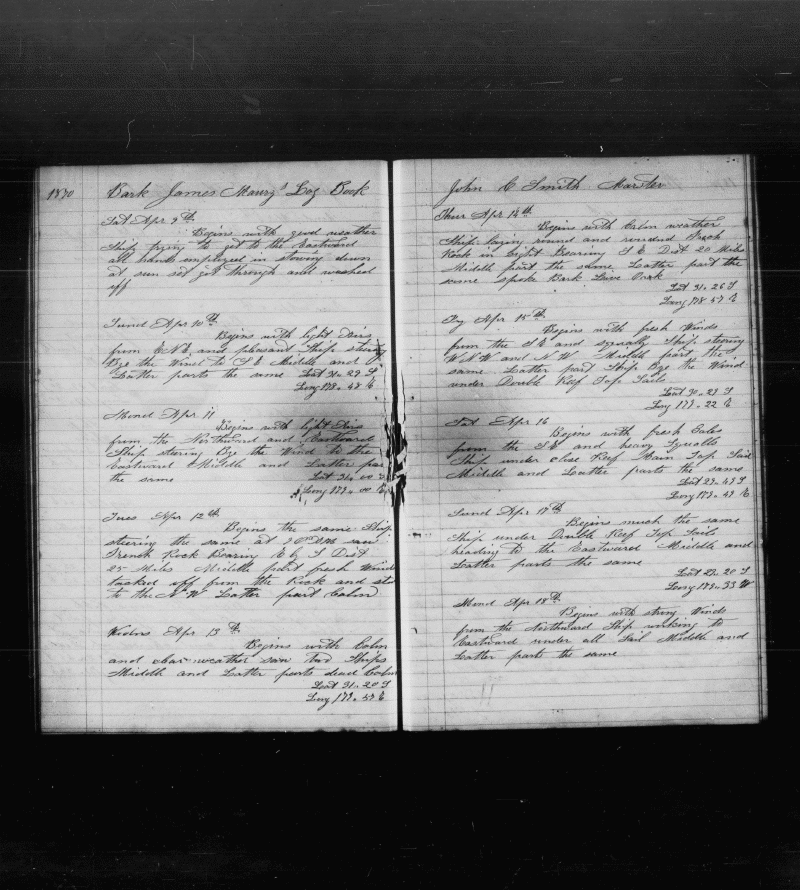 1870
Bark James Maury's Log Book
Sat Apr 9th
Begins with good weather
Ship trying to get to the Eastward
all hands employed in stowing down
at sun set got through and washed
off
Sund Apr 10th
Begins with light Airs
from ENE and pleasant Ship steering
Bye the Wind to S E Middle and
Latter parts the same Lat 31.. 29 S
Long 178.. 48 E
Mond Apr 11
Begins with light Airs
from the Northward and Eastward
Ship steering Bye the Wind to the
Eastward Middle and Latter par
the same Lat 31.. 00 S
Long 179.. 00 E
Tues Apr 12th
Begins the same Ship
steering the same at saw
French Rock Bearing E by S Dist
25 Miles Middle part fresh Wind
tacked off from the Rock and
to the N W Latter part Calm
Wedns Apr 13th
Begins with Calm
and clear weather saw two Ships
Middle and Latter parts dead Calm
Lat 31.. 20 S
Long 179.. 47 E
John C Smith Marster
Thur Apr 14th
Begins with Calm weather
Ship laying round and round
Rock in Sight Bearing S E Dist 20 Miles
Middle part the same Latter part the
same spoke Bark Live Oak
Lat 31.. 26 S
Long 178 57 E
Fry Apr 15th
Begins with fresh Winds
from the S E and squaly Ship stering
W N W and N W Middle part the
same Latter part Ship Bye the Wind
under Double Reef Top Sails
Lat 30.. 29 S
Long 179.. 22 E
Sat Apr 16
Begins with fresh Gales
from the S E and heavy Squalls
Ship under close Reef Main Top Sail
Middle and Latter parts the same
Lat 29.. 49 S
Long 179.. 49 E
Sund Apr 17th
Begins much the same
Ship under Double Reef Top Sails
heading to the Eastward Middle and
Latter parts the same
Lat 29.. 20 S
Long 179.. 33 W
Mond Apr 18th
Begins with strong Winds
from the Northward Ship working to
Eastward under all Sail Middle and
Latter parts the same